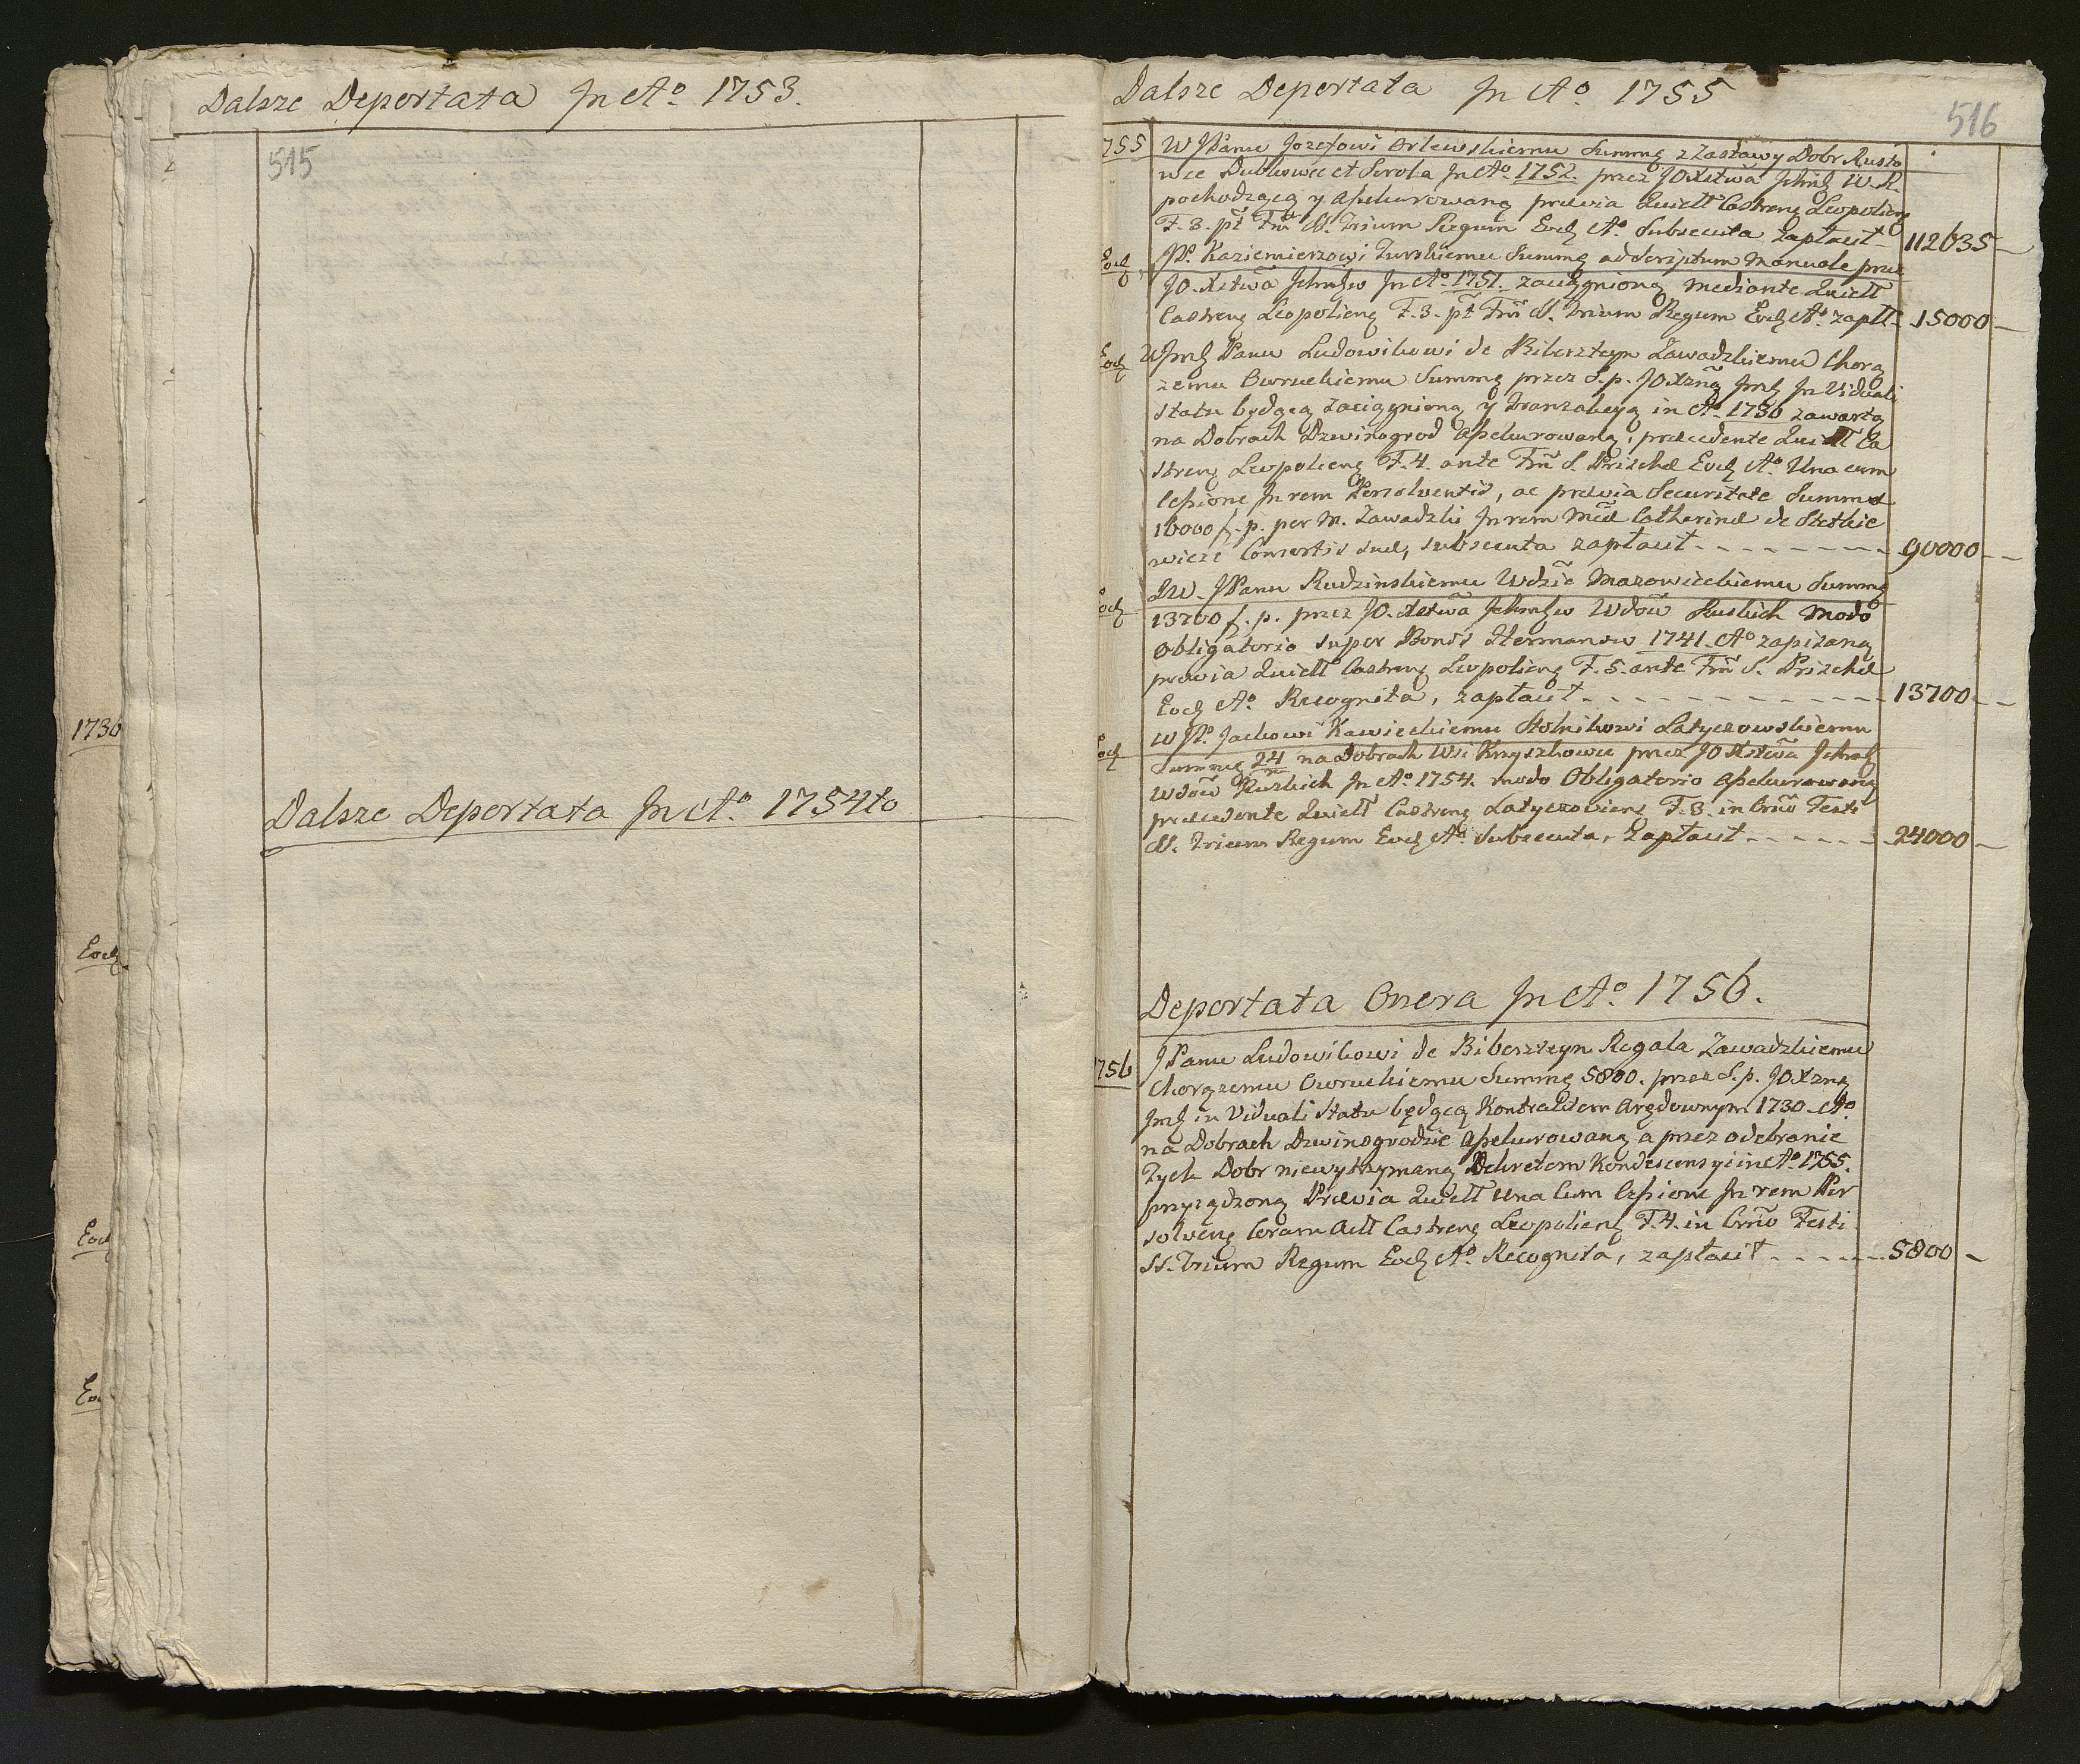 Dalsze Deportata Jn Ao. 1753.
515
1736
Eodz
Eodz
Eo
Dalsze Deportata Jn Ao. 1754to
Dalsze Deportata Jn Ao. 1755
516
755 W JPanu Jozefowi Orlewskiemu Summę z Zastawy Dobr Rusło
wce Dubkowce et Soroka Jn Ao. 1752. przez JOXstwa Jchmę W. R.
pochodzącą y assekurowaną prævia Quiett Castreną Leopolieną
F. 3. pt Fm SS. Trium Regum Eodz Ao. Subsecuta Zapłacił 112635
Eodz JP. Kazimierzowi Turskiemu Summę ad Scriptum Manuale przez
JO. Xstwa Jchmęw Jn Ao. 1751. zaciągnioną mediante Quiett
Castreną Leopolieną F. 3. pt Fm SS. Trium Regum Eodz Ao. zapłł. 15000
Eodz WJmę Panu Ludowikowi de Biberszteyn Zawadzkiemu Chorą
żemu Owruckiemu Summę przez S. p. JOXzną Jmę Jn Viduali
statu będącą zaciągnioną y tranzakcyą in Ao. 1730 zawartą
na Dobrach Dzwinogrod assekurowaną, præcedente Quiett Ca
streną Leopolieną F. 4. ante Fm S. Priscæ Eodz Ao. Una cum
Cessione Jn rem Persolventis, ac prævia Securitate Summæ
16000 f. p. per M. Zawadzki Jn rem Mcæ Catharinæ de Stetkie
wicze Consortis suæ, subsecuta zapłacił 90000
Eodz JW. JPanu Rudzinskiemu Wdzie Mazowieckiemu Summę
13700 f. p. przez JO. Xstwa Jchmęw Wdow Ruskich Modo
Obligatorio super Bonis Hermanow 1741. Ao zapisaną
prævia Quiett Castreną Leopolieną F. 5. ante Fm S. Priscæ
Eodz Ao. Recognita, zapłacił 13700
Eodz W JP. Jackowi Kawieckiemu Stolnikowi Latyczowskiemu
Summę 24 m na Dobrach Wsi Knyszkowce przez JO Xstwa Jchmę
Wdow Ruskich Jn Ao. 1754. modo Obligatorio assekurowaną
præcedente Quiett Castreną Latyczovieną F. 3. in Crno Festi
SS. Trium Regum Eodz Ao. Subsecuta, Zapłacił 24000
Deportata Onera Jn Ao. 1756.
756 JPanu Ludowikowi de Bibersteyn Rogala Zawadzkiemu
Chorązemu Owruckiemu Summę 5800. przez S. p. JOXzną
Jmę in Viduali statu będącą Kontraktem Arędownym 1730. Ao
na Dobrach Dzwinogrodzie assekurowaną a przez odebranie
Tych Dobr niewytrzymaną Dekretem Kondescensyi in Ao. 1755.
przysądzoną Prævia Quiett una Cum Cessione Jn rem Per
solveną Coram Actt Castreną Leopolieną F. 4. in Crno Festi
SS. Trium Regum Eodz Ao. Recognita, zapłacił 5800